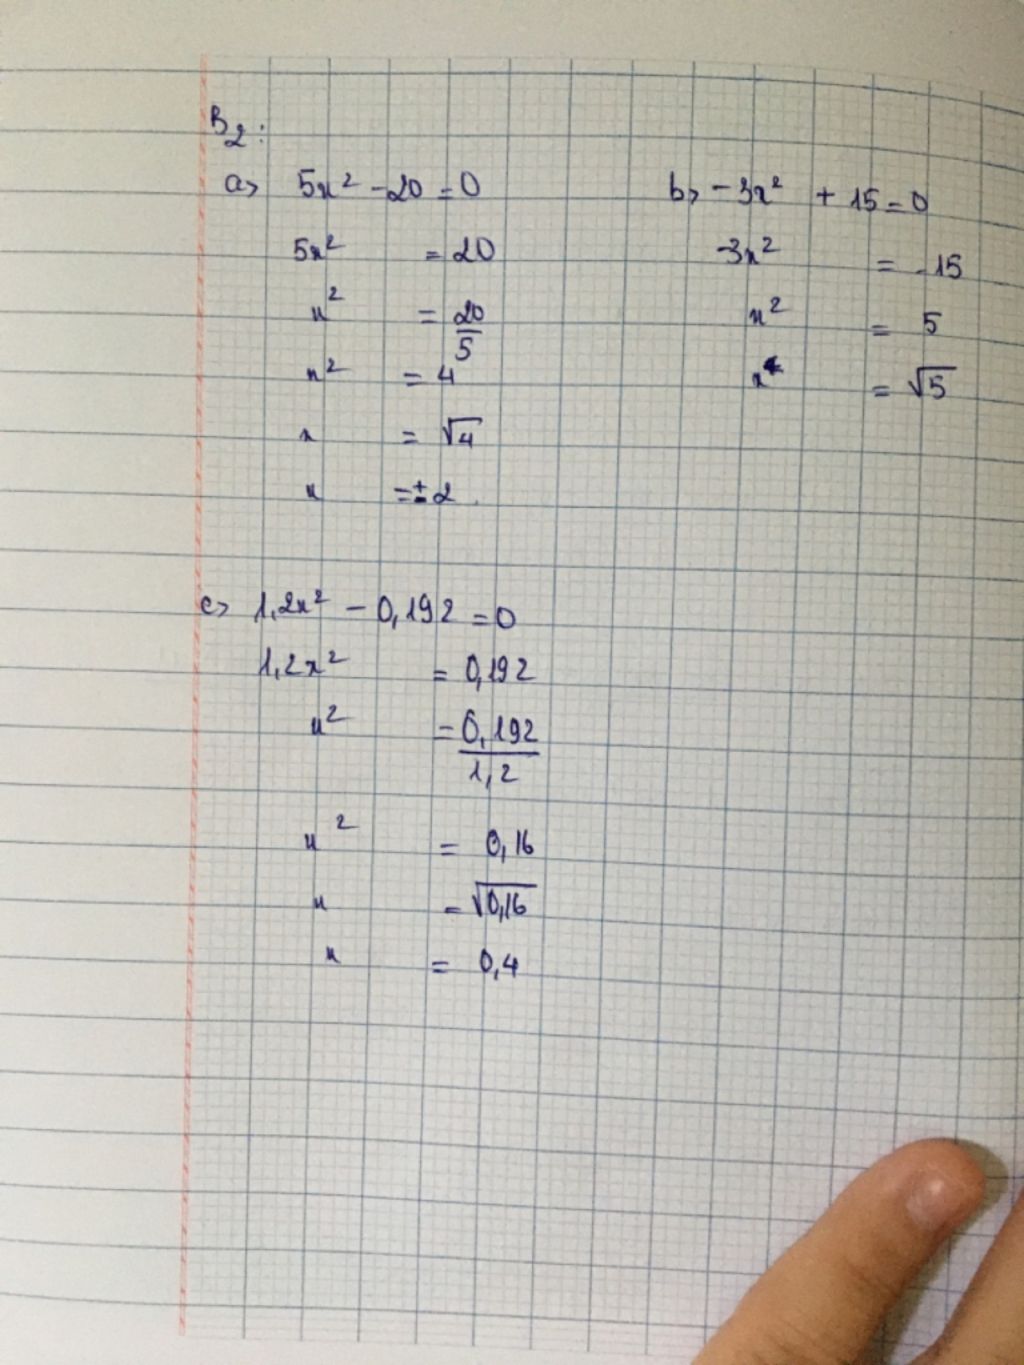 B2:
a> 5x² - 20 = 0
5x² = 20
x² = 20/5
x² = 4
x = √4
x = ± 2.
b> -3x² + 15 = 0
-3x² = -15
x² = 5
x = √5
c> 1,2x² - 0,192 = 0
1,2x² = 0,192
x² = 0,192/1,2
x² = 0,16
x = √0,16
x = 0,4